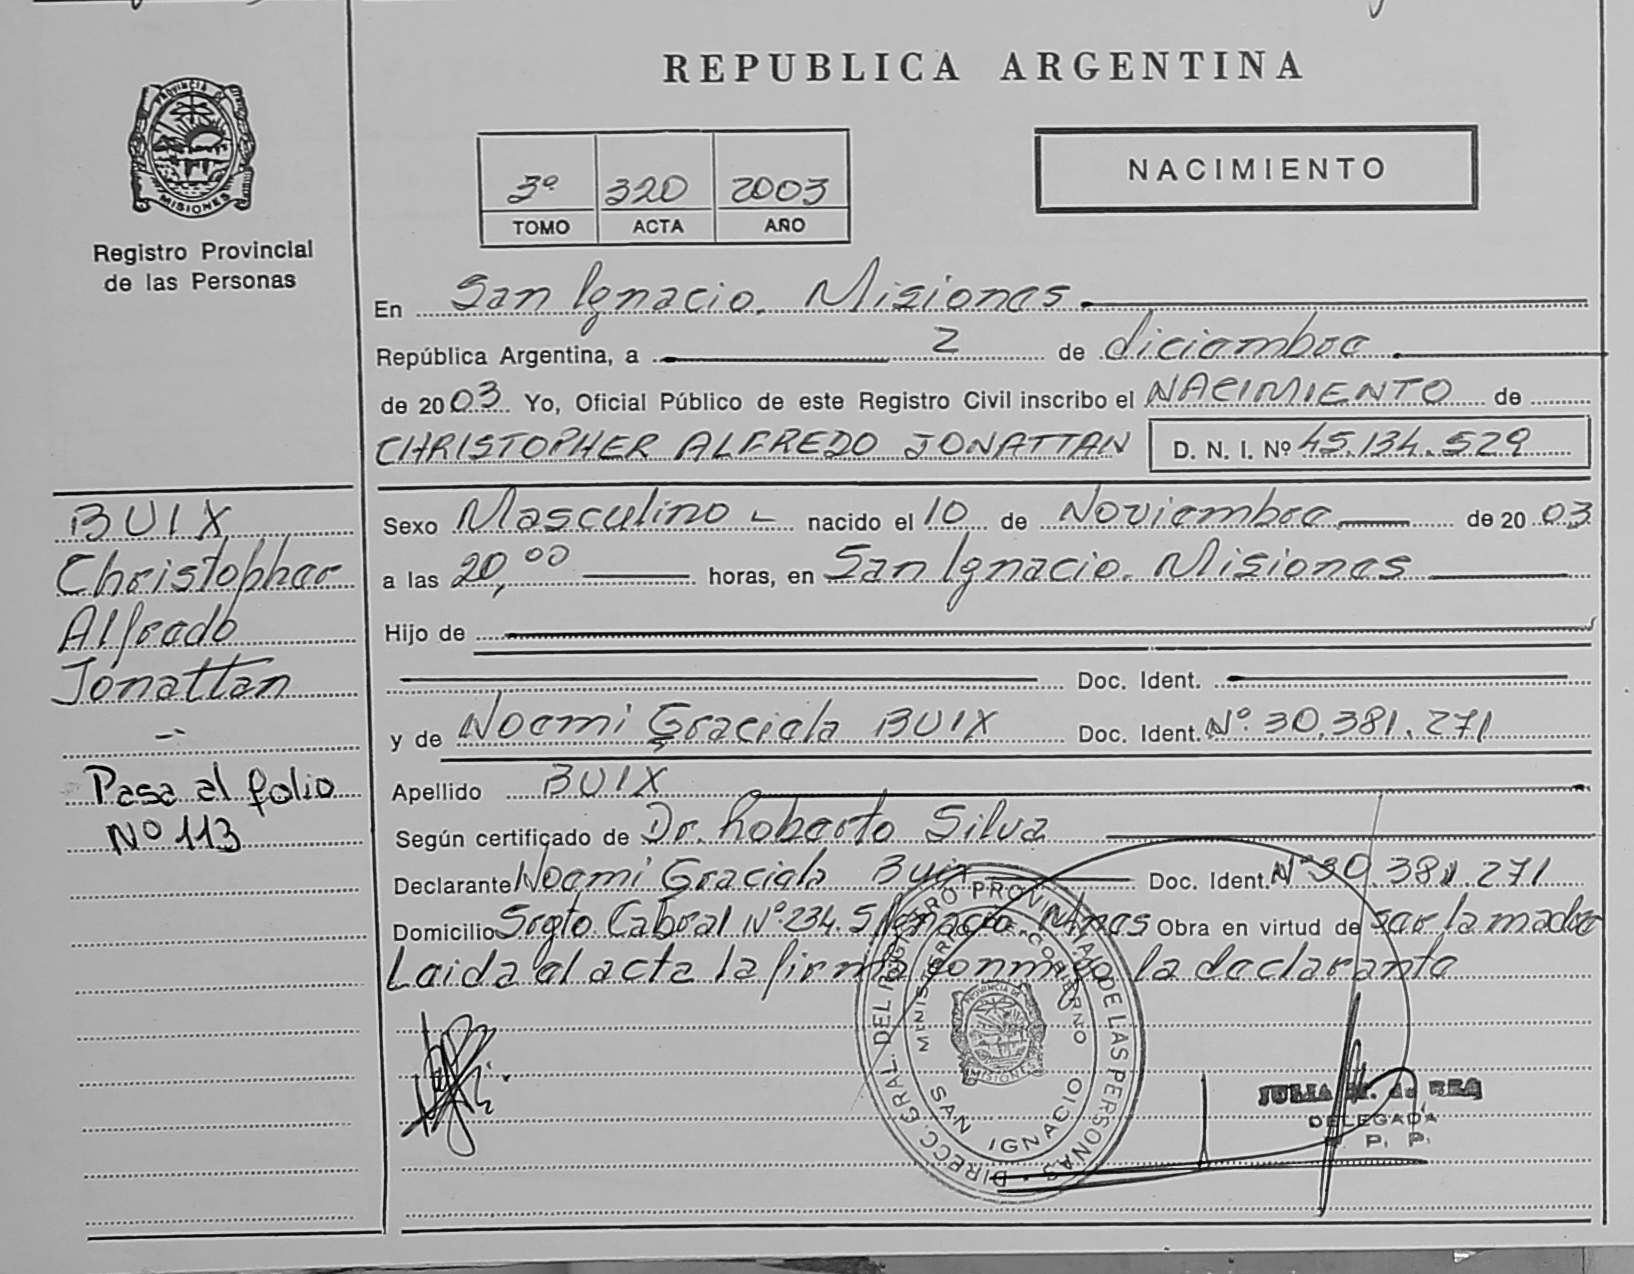 REPUBLICA ARGENTINA
PROVINCIA DE
MISIONES
Registro Provincial
de las Personas
NACIMIENTO
3º 320 2003
TOMO ACTA AÑO
En San Ignacio. Misiones
República Argentina, a 2 de diciembre
de 2003 Yo, Oficial Público de este Registro Civil inscribo el NACIMIENTO de
CHRISTOPHER ALFREDO JONATTAN D. N. I. Nº 45.134.529
Sexo Masculino nacido el 10 de Noviembre de 2003
a las 20,00 horas, en San Ignacio. Misiones
Hijo de
Doc. Ident.
y de Noemi Graciela BUIX Doc. Ident. Nº 30.381.271
Apellido BUIX
Según certificado de Dr. Roberto Silva
Declarante Noemi Graciela Buix Doc. Ident. Nº 30.381.271
Domicilio Srgto. Cabral Nº 234. S. Ignacio. Mnes Obra en virtud de ser la madre
Leida el acta la firma conmigo la declarante
BUIX
Christopher
Alfredo
Jonattan
Pasa al folio
Nº 113
DIRECC. GRAL. DEL REGISTRO PROVINCIAL DE LAS PERSONAS
MINISTERIO DE GOBIERNO
PROVINCIA DE
MISIONES
SAN IGNACIO
JULIA
DELEGADA
P. P.